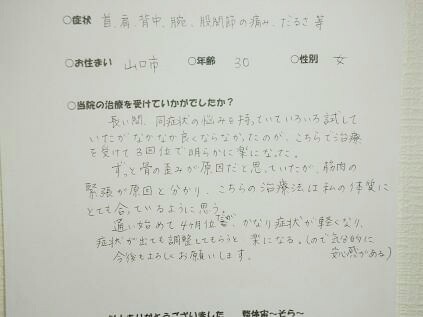 ○症状 首、肩、背中、腕、股関節の痛み、だるさ 等
○お住まい 山口市 ○年齢 30 ○性別 女
○当院の治療を受けていかがでしたか？
長い間、同症状の悩みを持っていていろいろ試して
いたがなかなか良くならなかったのが、こちらで治療
を受けて3回位で明らかに楽になった。
ずっと骨の歪みが原因だと思っていたが、筋肉の
緊張が原因と分かり、こちらの治療法は私の体質に
とても合っているように思う。
通い始めて4ヶ月位だが、かなり症状が軽くなり、
症状が出ても調整してもらうと楽になる。(ので気分的に
安心感がある)
今後もよろしくお願いします。
ありがとうございました 整体宙～そら～